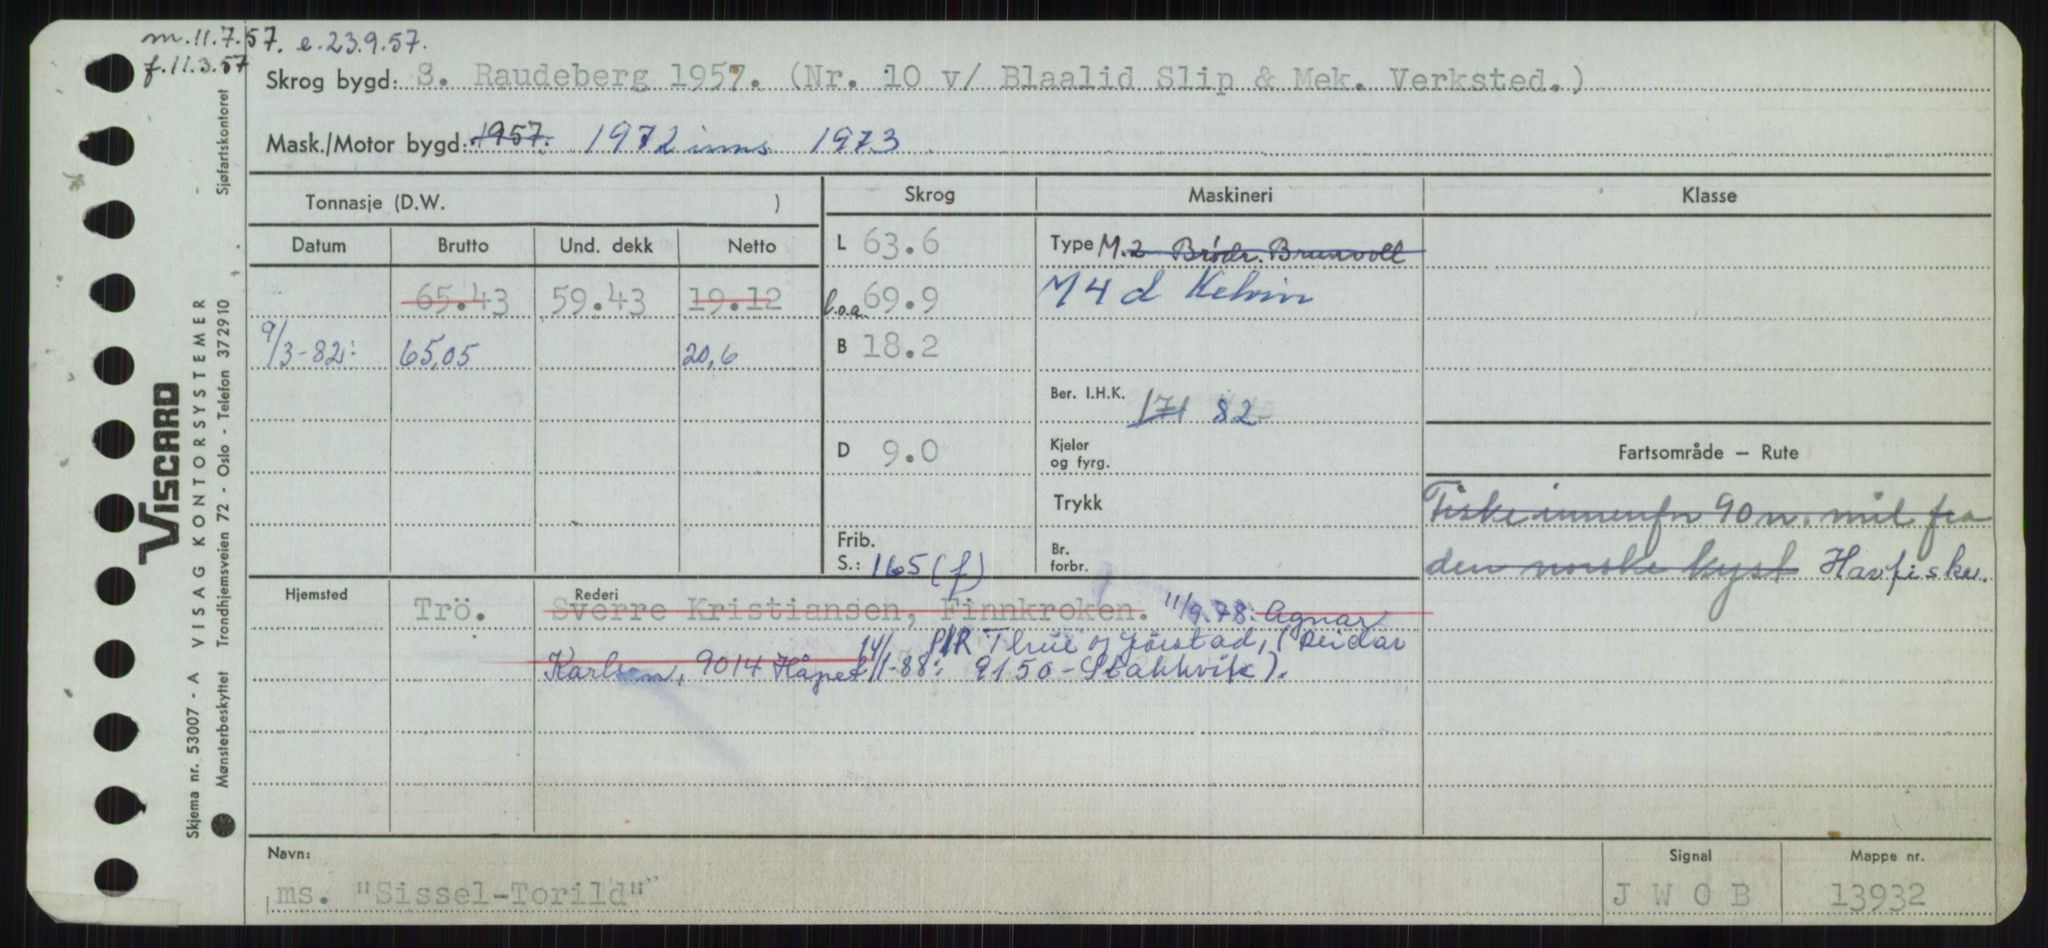 m.11.7.57. e.23.9.57.
f.11.3.57
Skrog bygd: S. Raudeberg 1957. (Nr. 10 v/ Blaalid Slip & Mek. Verksted.)
Mask./Motor bygd: 1957. 1972 inns 1973
Tonnasje (D.W. )
Skrog
Maskineri
Klasse
Datum Brutto Und. dekk Netto
L 63.6
Type M.2 Brödr. Brunvoll
65.43 59.43 19.12
l.o.a. 69.9
M4 d Kelvin
9/3-82: 65,05 20,6
B 18.2
Ber. I.H.K. 171 82
D 9.0
Kjeler og fyrg.
Fartsområde — Rute
Trykk
Fiske innenfor 90 n. mil fra
Frib. S.: 165 (f)
Br. forbr.
den norske kyst Havfiske.
Hjemsted Trö.
Rederi
Sverre Kristiansen, Finnkroken. 11/9.78: Agnar
Karlsen, 9014 Håpet 14/1-88: P/R Thrue og Jörstad, (Reidar
9150-Stakkvik).
Navn:
ms. "Sissel-Torild"
Signal
J W O B
Mappe nr.
13932
VISCARD
Skjema nr. 53007 - A VISAG KONTORSYSTEMER
Mønsterbeskyttet Trondhjemsveien 72 - Oslo - Telefon 372910 Sjøfartskontoret